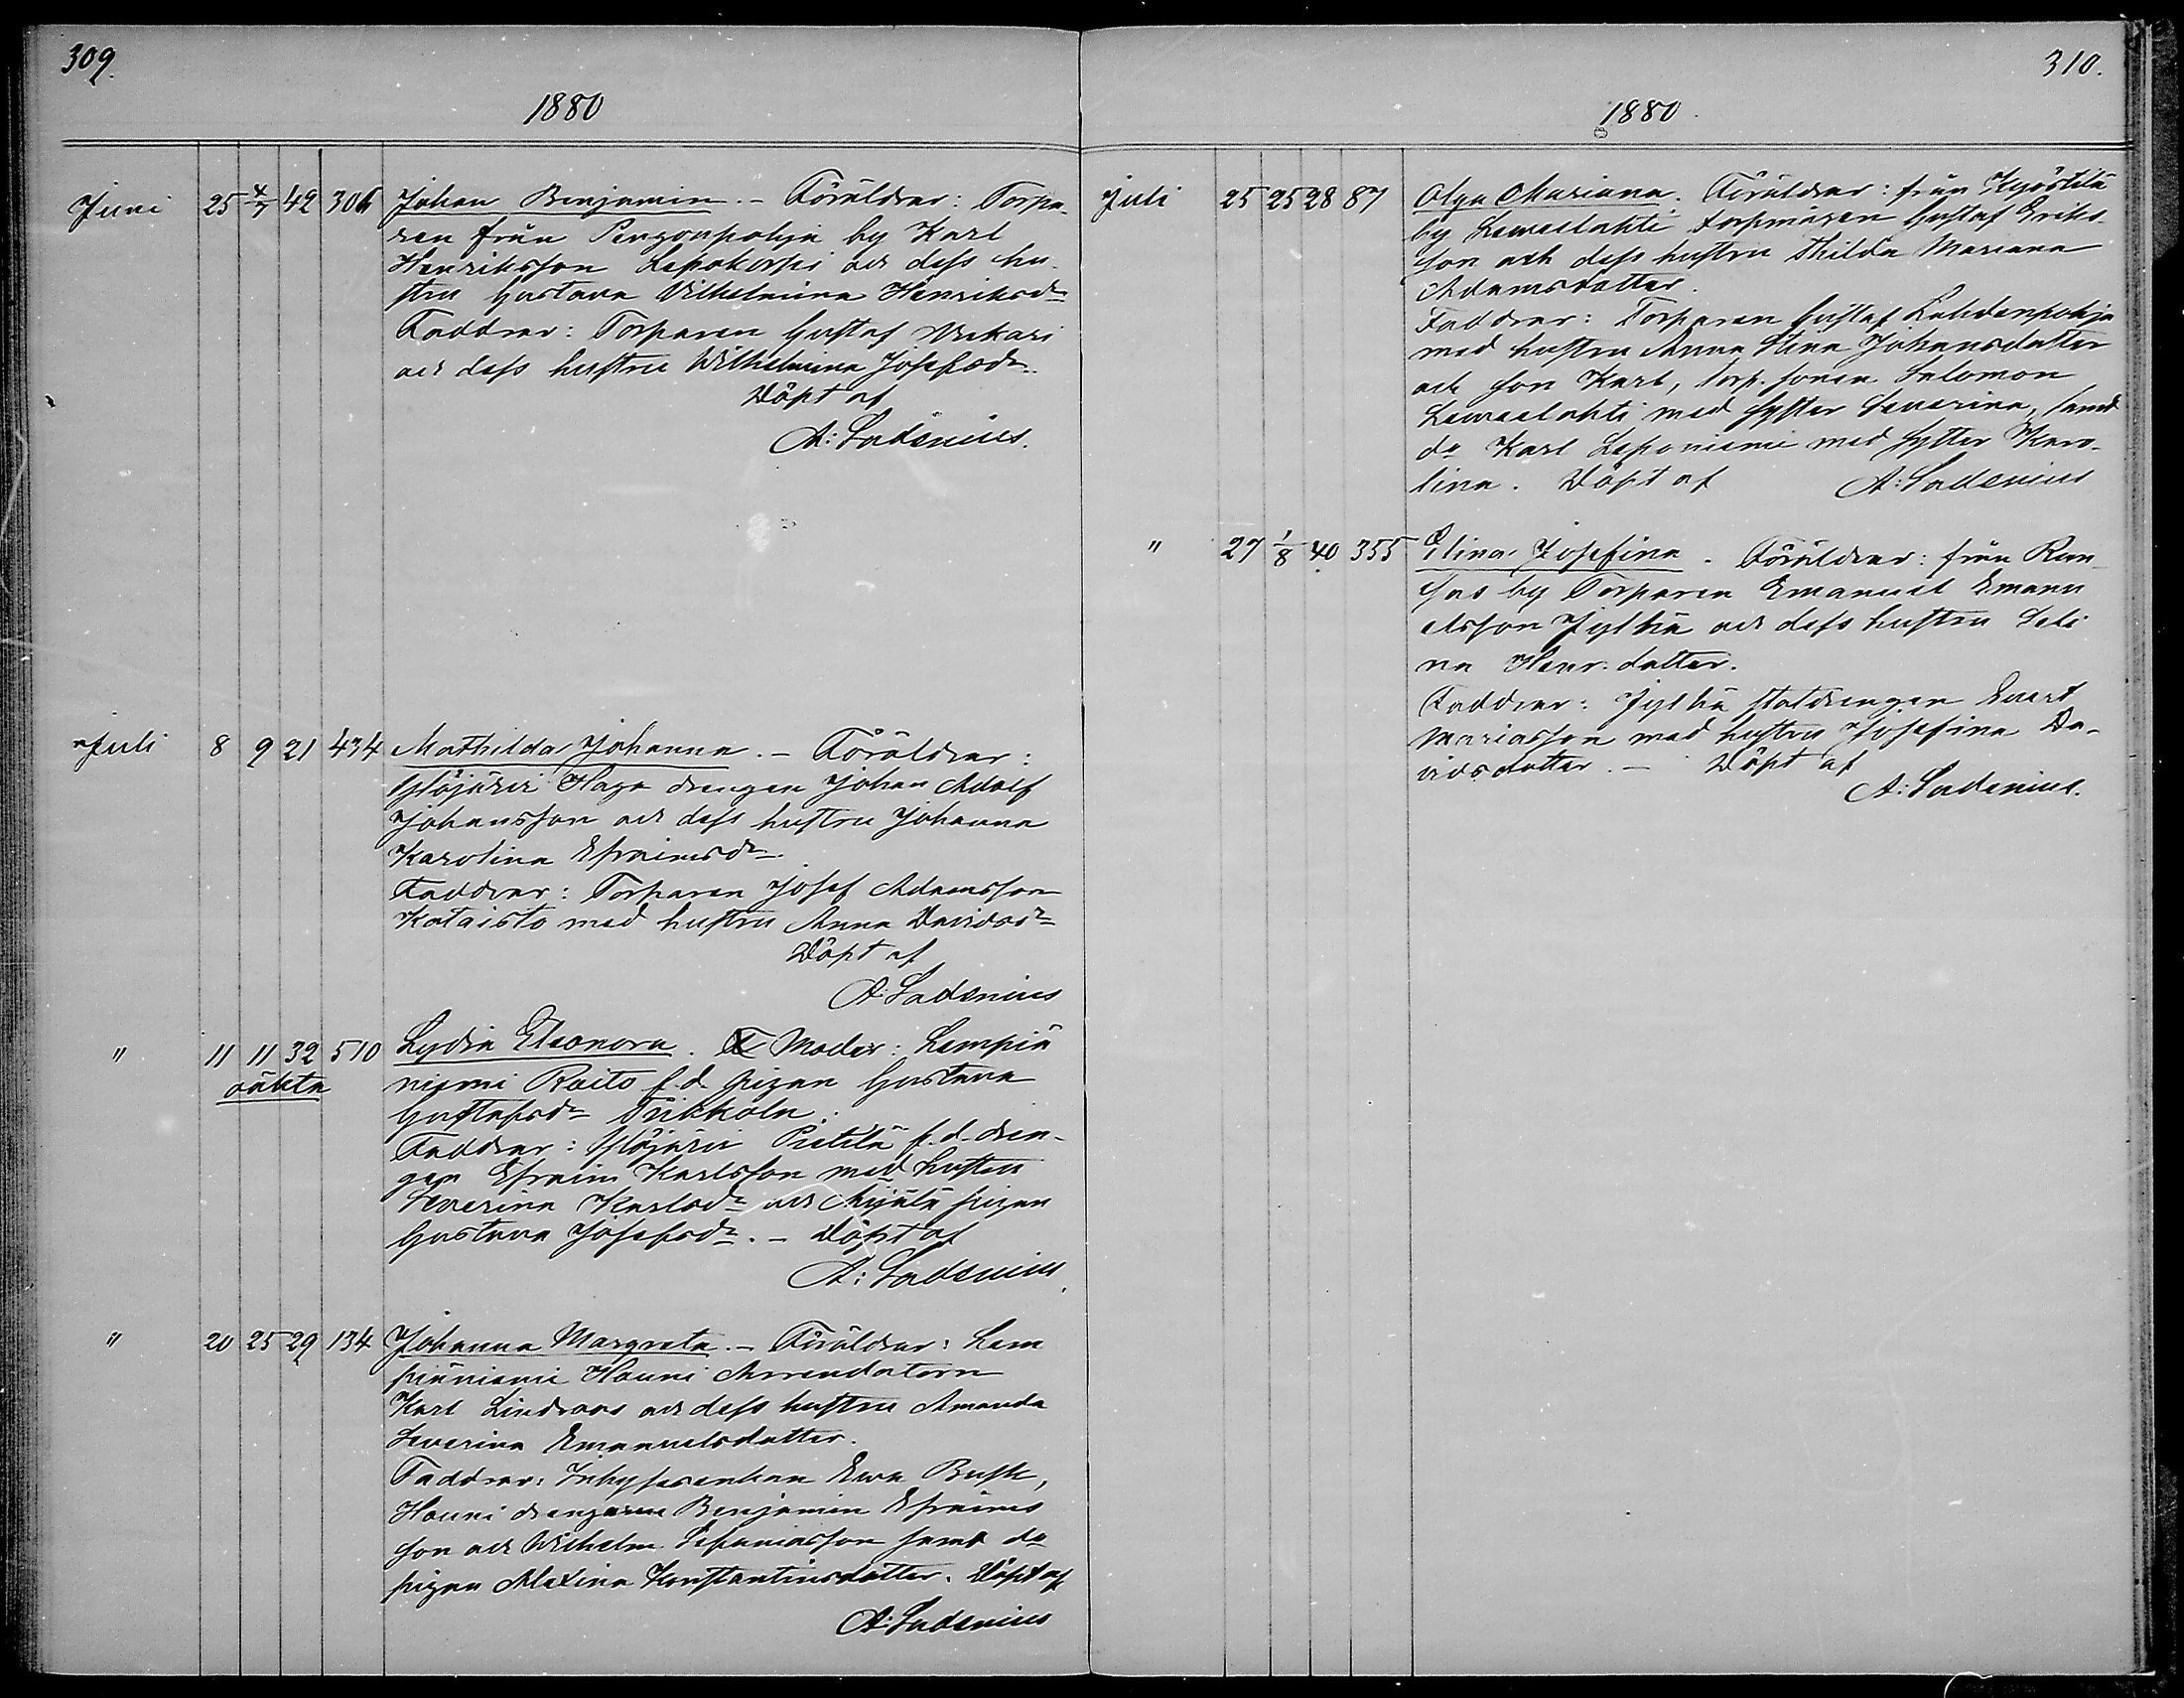 309.
1880
Juni 25 4/7 42 306 Johan Benjamin. - Föräldrar: Torpa-
ren från Pengonpohja by Karl
Henriksson Lepokorpi och dess hu-
stru Gustava Vilhelmina Henriksdr
Faddrar: Torparen Gustaf
och dess hustru Wilhelmina Josefsdr.
Döpt af
A: Ladenius.
Juli 8 9 21 434 Mathilda Johanna. - Föräldrar:
Haga drengen Johan Adolf
Johansson och dess hustru Johanna
Karolina Efraimsdr.
Faddrar: Torparen Josef Adamsson
Kataisto med hustru Anna Davidsdr
Döpt af
A: Ladenius
" 11 11 32 510 Lydia Eleonora. Moder: Lempiä
niemi Raito f.d. pigan Gustava
Gustafsdr Trikkola.
oäkta
Faddrar: Pietilä f.d. dren-
gen Efraim Karlsson med hustru
Severina Karlsdr och pigan
Gustava Josefsdr. - Döpt af
A: Ladenius.
" 20 25 29 134 Johanna Margreta. - Föräldrar: Lem
piäniemi Hauni Arrendatorn
Karl Lindroos och dess hustru Amanda
Severina Emanuelsdotter.
Faddrar: Inhysesenkan Ewa Busk,
Hauni drengarne Benjamin Efraims
son och Wilhelm Sefaniasson samt do
pigan Alexina Konstantinsdotter. Döpt af
A: Ladenius
310.
1880.
Juli 25 25 28 87 Olga Mariana. Föräldrar: från Kyöstilä
by Lewaslahti torpmågen Gustaf Eriks-
son och dess hustru Thilda Mariana
Adamsdotter.
Faddrar: Torparen Gustaf Lahdenpohja
med hustru Anna Stina Johansdotter
och son Karl, torp. sonen Salomon
Lewaslahti med syster Severina, samt
do Karl Leponiemi med syster Karo-
lina. Döpt af A: Ladenius
" 27 1/8 40 355 Elina Josefina. Föräldrar: från Ran-
sas by Torparen Emanuel Emanu
elsson Jylhä och dess hustru Seli
na Henr. dotter.
Faddrar: Jylhä statdrengen Evert
Mariasson med hustru Josefina Da-
vidsdotter. - Döpt af
A: Ladenius.